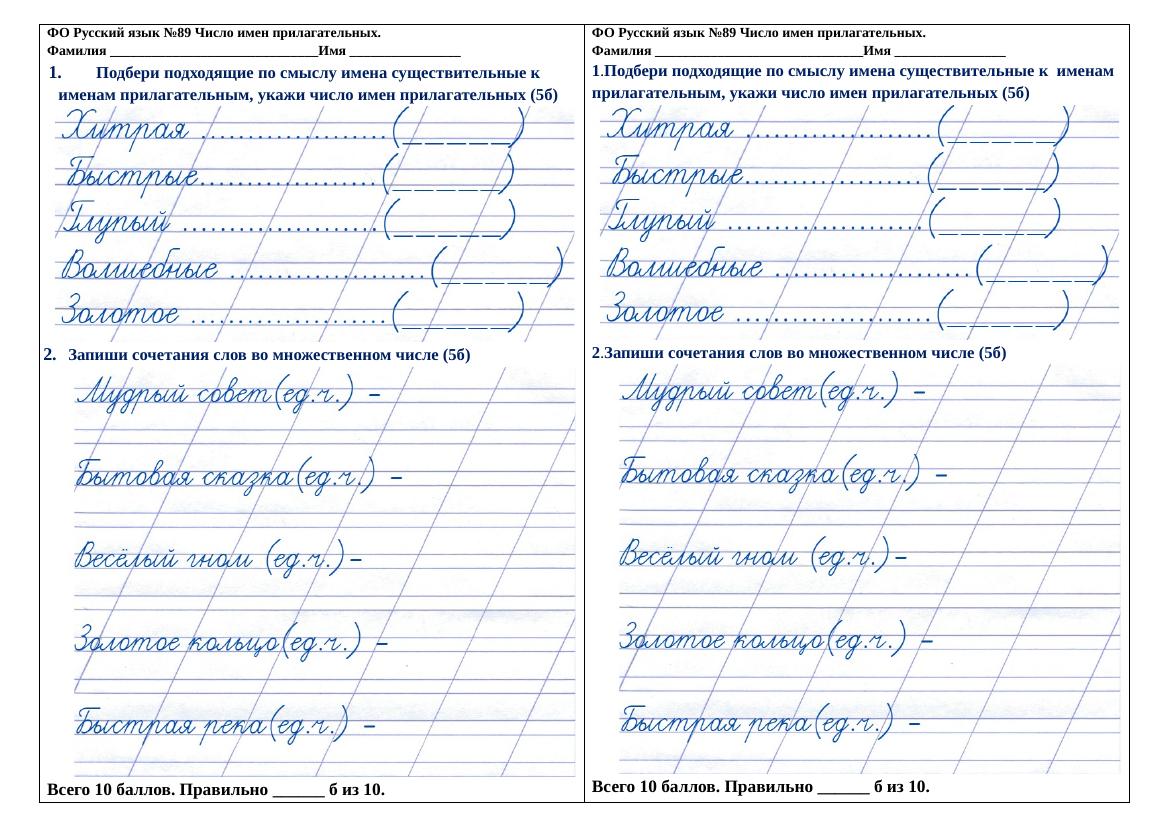 ФО Русский язык №89 Число имен прилагательных.
Фамилия ______________________________Имя ________________
1. Подбери подходящие по смыслу имена существительные к
именам прилагательным, укажи число имен прилагательных (5б)
Хитрая ...................(_ _ _ _ _ _)
Быстрые..................(_ _ _ _ _ _)
Глупый ....................(_ _ _ _ _ _)
Волшебные ....................(_ _ _ _ _ _)
Золотое ....................(_ _ _ _ _ _)
2. Запиши сочетания слов во множественном числе (5б)
Мудрый совет(ед.ч.) –
Бытовая сказка(ед.ч.) –
Весёлый гном (ед.ч.)–
Золотое кольцо(ед.ч.) –
Быстрая река(ед.ч.) –
Всего 10 баллов. Правильно ______ б из 10.
ФО Русский язык №89 Число имен прилагательных.
Фамилия ______________________________Имя ________________
1.Подбери подходящие по смыслу имена существительные к именам
прилагательным, укажи число имен прилагательных (5б)
Хитрая ...................(_ _ _ _ _ _)
Быстрые..................(_ _ _ _ _ _)
Глупый ....................(_ _ _ _ _ _)
Волшебные ....................(_ _ _ _ _ _)
Золотое ....................(_ _ _ _ _ _)
2.Запиши сочетания слов во множественном числе (5б)
Мудрый совет(ед.ч.) –
Бытовая сказка(ед.ч.) –
Весёлый гном (ед.ч.)–
Золотое кольцо(ед.ч.) –
Быстрая река(ед.ч.) –
Всего 10 баллов. Правильно ______ б из 10.